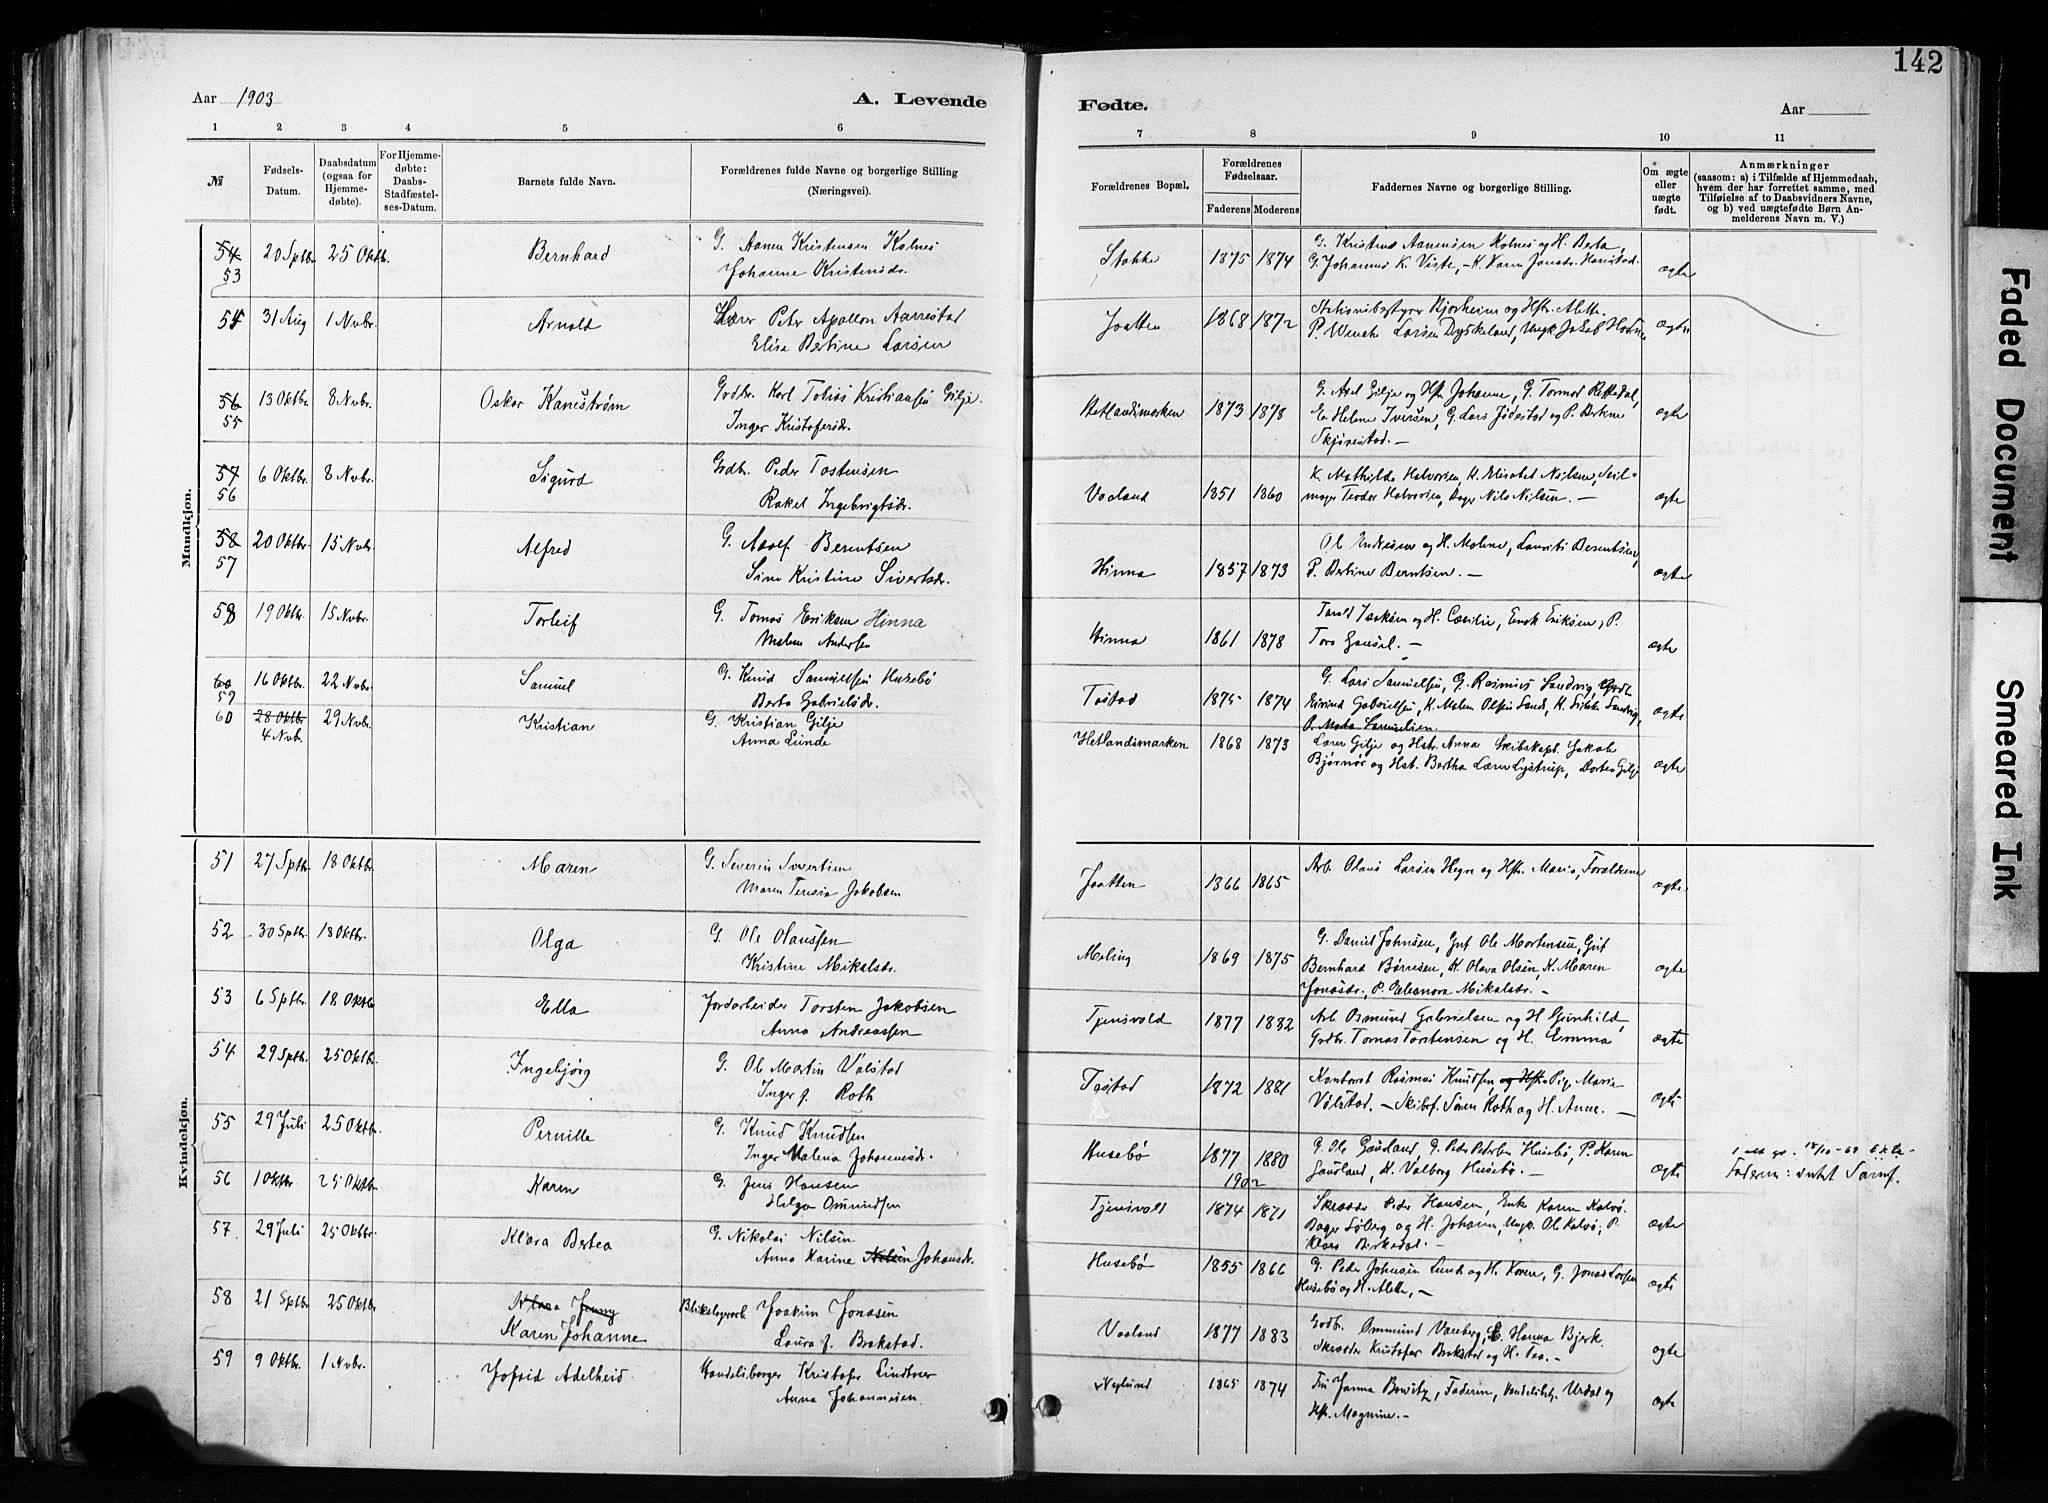 142
Aar 1903
A. Levende
Fødte.
Aar
1 2 3 4 5 6 7 8 9 10 11
№
Fødsels-Datum.
Daabsdatum (ogsaa for Hjemmedøbte).
For Hjemmedøbte: Daabs-Stadfæstelses-Datum.
Barnets fulde Navn.
Forældrenes fulde Navne og borgerlige Stilling (Næringsvei).
Forældrenes Bopæl.
Forældrenes Fødselsaar.
Faderens Moderens
Faddernes Navne og borgerlige Stilling.
Om ægte eller uægte født.
Anmærkninger
(saasom: a) i Tilfælde af Hjemmedaab, hvem der har forrettet samme, med Tilføielse af to Daabsvidners Navne, og b) ved uægtefødte Børn Anmelderens Navn m. V.)
Mandkjøn.
54 53 20 Sptbr. 25 Oktb. Bernhard G. Aanen Kristensen Kolnes
Johanne Kristensdr. Stokke 1875 1874 G. Kristens Aanensen Kolnes og H. Berta,
G. Johannes K. Viste, - K. Karen Jonasdr. Harestad. ægte
54 31 Aug 1 Nvbr. Arnold Lærer Peter Apollon Aarrestad
Elisa Bertine Larsen Jaatten 1868 1872 Stationsbestyrer Bjorheim og Hstr. Alette.
P. Wenche Larsen Dyskeland, Ungk. Jakob ægte
56 55 13 Oktbr. 8 Nvbr. Oskar Kanestrøm Grdbr. Karl Tobias Kristiansen Gilje.
Inger Kristofersdr. Hetlandsmarken 1873 1878 G. Axel Gilje og Hstr Johanne, G. Tormod Rettedal,
E. Helene Iversen, G. Lars Jødestad og P. Bertine
Skjørestad. - ægte
57 56 6 Oktbr. 8 Nvbr. Sigurd Grdbr. Peder Tostensen
Rakel Ingebrigtsdr. Vaaland 1851 1860 K. Mathilde Halvorsen, K. Elisabet Nilsen, Seil-
mager Teodor Halvorsen, Bager Nils Nilsen. - ægte
58 57 20 Oktbr. 15 Nvbr. Alfred G. Adolf Berentsen
Sine Kristine Sivertsdr. Hinna 1857 1873 Ol. Endresen og H. Malene, Laurits Berentsen,
P. Bertine Berntsen. - ægte
58 19 Oktbr. 15 Nvbr. Torleif G. Tomas Eriksen Hinna
Malene Andersen Hinna 1861 1878 Tarald Isaksen og H. Cæcilie, Enok Eriksen, P.
Tora Gausel. - ægte
60 59 16 Oktbr. 22 Nvbr. Samuel G. Knud Samuelsen Husebø
Berta Gabrielsdr. Tastad 1875 1874 G. Lars Samuelsen, G. Rasmus Sandvig, Grdb.
Eivind Gabrielsen, K. Malene Olsen Sande, K. Sandvig,
P. Marta Samuelsen. ægte
60 28 Oktbr 4 Nvb. 29 Nvbr. Kristian G. Kristian Gilje
Anna Lunde Hetlandsmarken 1868 1873 Lærer Gilje og Hstr. Anna Skibskapt. Jakob
Bjørnør og Hst. Bertha Lærer Lystrup, Dortea Gilje ægte
Kvindekjøn.
51 27 Sptbr. 18 Oktbr. Maren G. Severin Svertsen
Maren Teresia Jakobsen Jaatten 1866 1865 Arb. Olaus Larsen Hegre og Hstr. Maria, Forældrene ægte
52 30 Sptbr. 18 Oktbr. Olga G. Ole Olaussen
Kristine Mikalsdr. Meling 1869 1875 G. Daniel Johnsen, Gut Ole Mortensen, Gut
Bernhard Børresen, K. Olava Olsen, K. Maren
Jonasdr., P. Eleanora Mikalsdr. - ægte
53 6 Sptbr. 18 Oktbr Ella Jordarbeider Torsten Jakobsen
Anna Andreassen Tjensvold 1877 1882 Arb. Osmund Gabrielsen og H Gunhild,
Grdbr. Tomas Torstensen og H. Emma ægte
54 29 Sptbr. 25 Oktbr. Ingebjørg G. Ole Martin Vølstad
Inger f. Roth Tastad 1872 1881 Kontorist Rasmus Knudsen og Hstr. Pige Maria
Vølstad. - Skibsf. Søren Roth og H. Anne. - ægte
55 29 Juli 25 Oktbr. Pernille G. Knud Knudsen
Inger Malena Johannesdr. Husebø 1877 1880 G. Ole Gausland, G. Peder Pedersen Husebø, P. Karen
Gausland, K. Valborg Husebø. - ægte
56 1 Oktbr. 25 Oktbr Karen G. Jens Hansen
Helga Omundsen Tjensvold 1902 1874 1871 Skrædder Peder Hansen, Enke Karen Kalvø.
Bager Søberg og H. Johanna, Ungk. Ole Kalvø, P.
Klara Birkedal. - ægte
57. 29 Juli 25 Oktbr. Klara Bertea G. Nikolai Nilsen
Anna Karine Nilsen Johansdr. Husebø 1855 1866 G. Peder Johnsen Lunde og H. Karen, G. Jonas Larsen
Husebø og H. Alette, - ægte
58 21 Sptbr 25 Oktbr Klara Jenny
Karen Johanne Joakim Jonasen
Laura f. Brekstad. Vaaland 1877 1883 Grdb. Ommund Vareberg, E. Hanna Bjerk.
Skrædder Kristofer Brekstad og H. Tea. - ægte
59 9 Oktbr. 1 Nvbr. Jofrid Adelheid Handelsborger Kristofer Lindtner
Anna Johannesen. Neylund 1865 1874 Fru Janna Bowitz, Faderen, Urdal og
Hstr. Magnine. - ægte
Faded Document
Smeared Ink